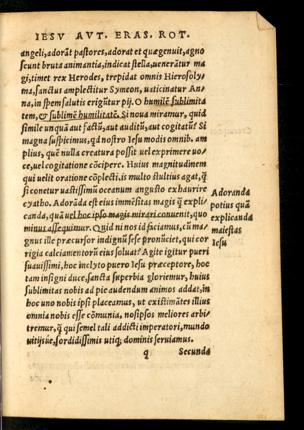 IESV AVT. ERAS. ROT.
angeli, adorāt pastores, adorat et quæ genuit, agno
scunt bruta animantia, indicat stella, uenerātur ma
gi, timet rex Herodes, trepidat omnis Hierosoly
ma, sanctus amplectitur Symeon, uaticinatur An/
na, in spem salutis erigūtur pij. O humilē sublimita
tem, & sublimē humilitatē. Si noua miramur, quid
simile unquā aut factū, aut auditū, aut cogitatū? Si
magna suspicimus, qd nostro Iesu modis omnib. am
plius, quē nulla creatura possit uel exprimere uo
ce, uel cogitatione cōcipere. Huius magnitudinem
qui uelit oratione cōplecti, is multo stultius agat, q̄
si conetur uastissimū oceanum angusto exhaurire
cyatho. Adorāda est eius immēsitas magis q̄ expli
canda, quā uel hoc ipso magis mirari conuenit, quo
minus assequimur. Quid ni nos id faciamus, cū ma/
gnus ille præcursor indignū sese pronūciet, qui cor
rigia calciamentorū eius soluat? Agite igitur pueri
suauissimi, hoc inclyto puero Iesu præceptore, hoc
tam insigni duce, sancta superbia gloriemur, huius
sublimitas nobis ad pie audendum animos addat, in
hoc uno nobis ipsi placeamus, ut existimātes illius
omnia nobis esse cōmunia, nosipsos meliores arbi/
tremur, q̄ qui semel tali addicti imperatori, mundo
uitijsue, sordidissimis utiq; dominis seruiamus.
q Secunda
Adoranda
potius quā
explicanda
maiestas
Iesu